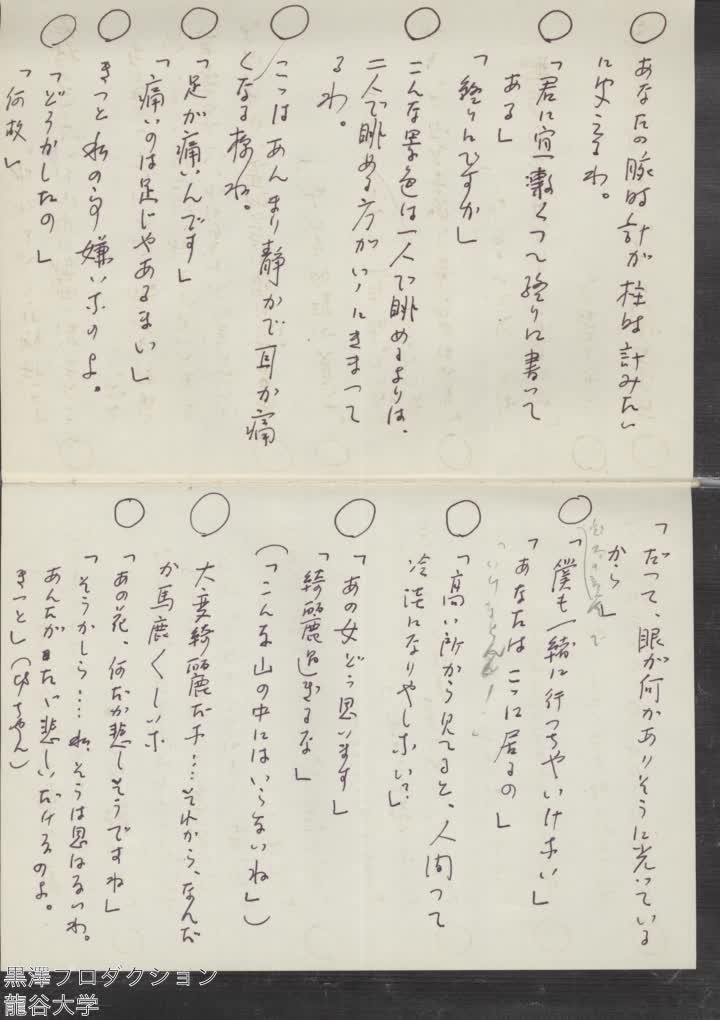 あなたの腕時計が柱時計みたい
に聞えるわ。
「君に宜敷くつて終りに書いて
ある」
「終りにですか」
こんな景色は一人で眺めるよりは、
二人で眺める方がいゝにきまつて
るわ。
こゝはあんまり静かで耳が痛
くなる様ね。
「足が痛いんです」
「痛いのは足じやあるまい」
きつと私の事嫌いなのよ。
「どうかしたの」
「何故」
「だつて、眼が何かありそうに光っている
から」
「僕も一緒に行つちやいけない」
「あなたはこゝに居るの」
「高い所から見てると、人間つて
冷淡になりやしない?」
「あの女どう思います」
「綺麗過ぎるな」
(「こんな山の中にはいらないね」)
大変綺麗だな…それから、なんだ
か馬鹿くしいな
「あの花、何だか悲しそうですね」
「そうかしら…私、そうは思はないわ。
あんたが悲しいだけなのよ。
きつと」
黒澤プロダクション
龍谷大学